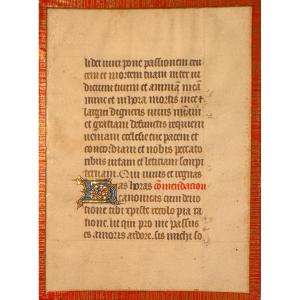 li dei vivi pone passionem cru
cem et mortem tuam inter iu
dicium tuum et animam meam
nunc et in hora mortis mee et
largiri digneris vivis miam
et gratiam defunctis requiem
veniam ecclesie tue pacem et
concordiam et nobis peccato
ribus vitam et leticiam sempi
ternam. Qui vivis et regnas
Has horas comendacion
canonicas cum devo
tione tibi xpiste recolo pia ra
tione. ut qui pro me passus
es amoris ardore. sis michi so